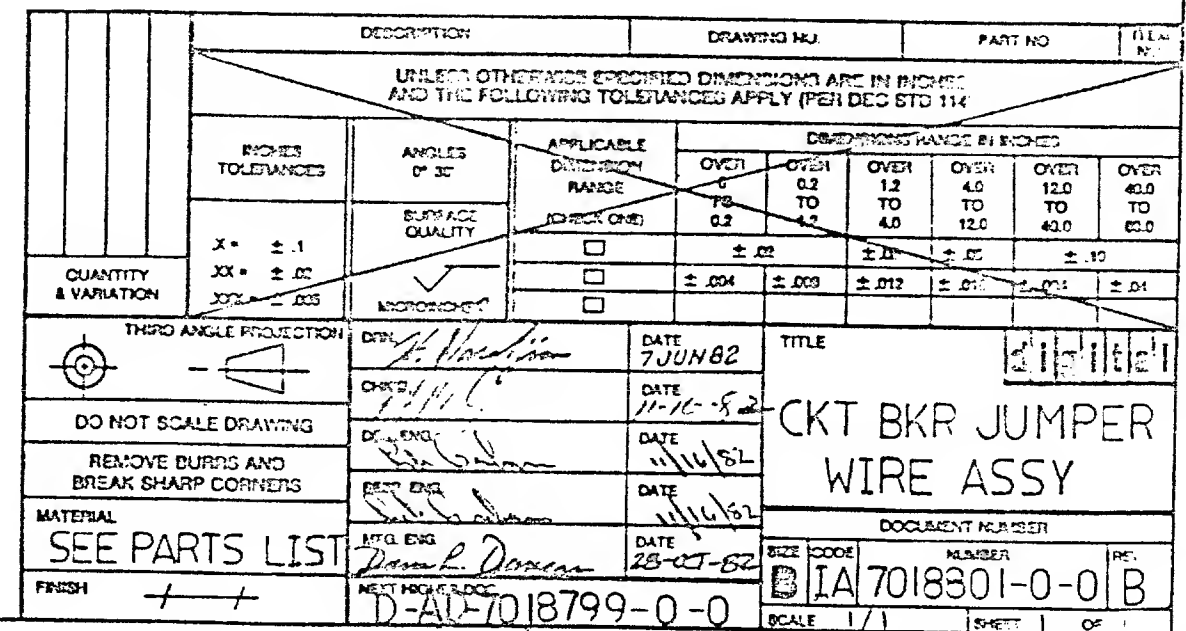 DESCRIPTION DRAWING NO. PART NO
UNLESS OTHERWISE SPECIFIED DIMENSIONS ARE IN INCHES
AND THE FOLLOWING TOLERANCES APPLY (PER DEC STD 114
INCHES
TOLERANCES
X = ± .1
XX = ± .02
XXX = ± .005
ANGLES
0° 30'
SURFACE
QUALITY
MICROINCHES
APPLICABLE
DIMENSION
RANGE
(CHECK ONE)
DIMENSIONS RANGE IN INCHES
OVER OVER OVER OVER OVER OVER
0 0.2 1.2 4.0 12.0 40.0
TO TO TO TO TO TO
0.2 1.2 4.0 12.0 40.0
± .02 ± .10
± .004 ± .008 ± .012 ± .04
QUANTITY
& VARIATION
THIRD ANGLE PROJECTION
DO NOT SCALE DRAWING
REMOVE BURRS AND
BREAK SHARP CORNERS
MATERIAL
SEE PARTS LIST
FINISH
DRN.
DATE
7 JUN 82
CHK'D.
DATE
11-16-82
DATE
11/16/82
DATE
11/16/82
MFG. ENG.
DATE
28-OCT-82
NEXT HIGHER DOC
D-AD-7018799-0-0
TITLE
digital
CKT BKR JUMPER
WIRE ASSY
DOCUMENT NUMBER
SIZE CODE NUMBER REV.
B IA 7018801-0-0 B
SCALE 1/1 SHEET 1 OF